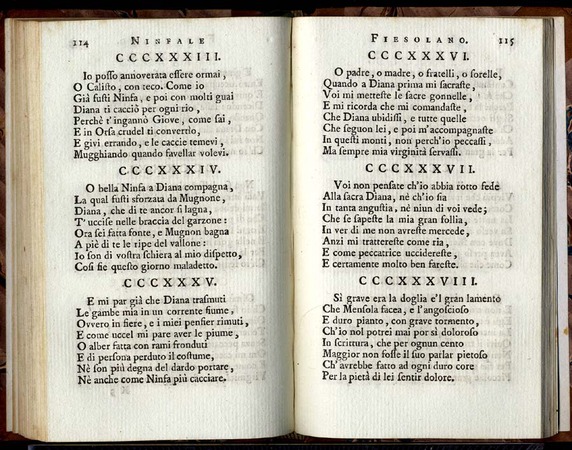 114 NINFALE
CCCXXXIII.
Io posso annoverata essere ormai,
O Calisto, con teco. Come io
Già fusti Ninfa, e poi con molti guai
Diana ti cacciò per ogni rio,
Perchè t'ingannò Giove, come sai,
E in Orsa crudel ti convertìo,
E givi errando, e le caccie temevi,
Mugghiando quando favellar volevi.
CCCXXXIV.
O bella Ninfa a Diana compagna,
La qual fusti sforzata da Mugnone,
Diana, che di te ancor si lagna,
T'uccise nelle braccia del garzone:
Ora sei fatta fonte, e Mugnon bagna
A piè di te le ripe del vallone:
Io son di vostra schiera al mio dispetto,
Così fie questo giorno maladetto.
CCCXXXV.
E mi par già che Diana trasmuti
Le gambe mia in un corrente fiume,
Ovvero in fiere, e i miei pensier rimuti,
E come uccel mi pare aver le piume,
O alber fatta con rami fronduti
E di persona perduto il costume,
Nè son più degna del dardo portare,
Nè anche come Ninfa più cacciare.
FIESOLANO. 115
CCCXXXVI.
O padre, o madre, o fratelli, o sorelle,
Quando a Diana prima mi sacraste,
Voi mi metteste le sacre gonnelle,
E mi ricorda che mi comandaste,
Che Diana ubidissi, e tutte quelle
Che seguon lei, e poi m'accompagnaste
In questi monti, non perch'io peccassi,
Ma sempre mia virginità servassi.
CCCXXXVII.
Voi non pensate ch'io abbia rotto fede
Alla sacra Diana, nè ch'io sia
In tanta angustia, nè niun di voi vede;
Che se sapeste la mia gran follia,
In ver di me non avreste mercede,
Anzi mi trattereste come ria,
E come peccatrice uccidereste,
E certamente molto ben fareste.
CCCXXXVIII.
Sì grave era la doglia e'l gran lamento
Che Mensola facea, e l'angoscioso
E duro pianto, con grave tormento,
Ch'io nol potrei mai por sì doloroso
In scrittura, che per ognun cento
Maggior non fosse il suo parlar pietoso
Ch'avrebbe fatto ad ogni duro core
Per la pietà di lei sentir dolore.